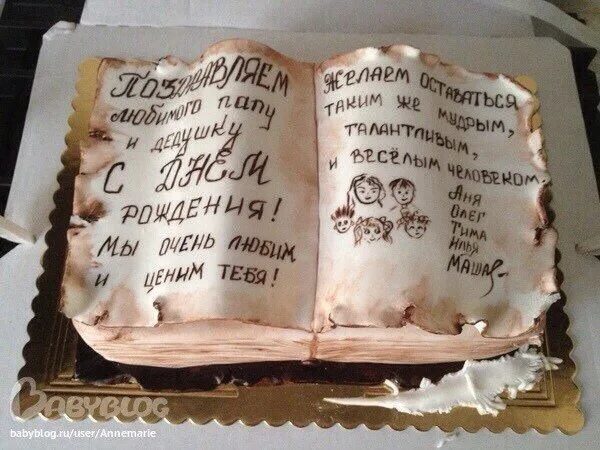 Поздравляем
любимого папу
и дедушку
С ДНЁМ
РОЖДЕНИЯ!
Мы очень любим
и ценим тебя!
Желаем оставаться
таким же мудрым,
талантливым,
и весёлым человеком.
Аня
Олег
Тима
Илья
Маша
BABYBLOG
babyblog.ru/user/Annemarie